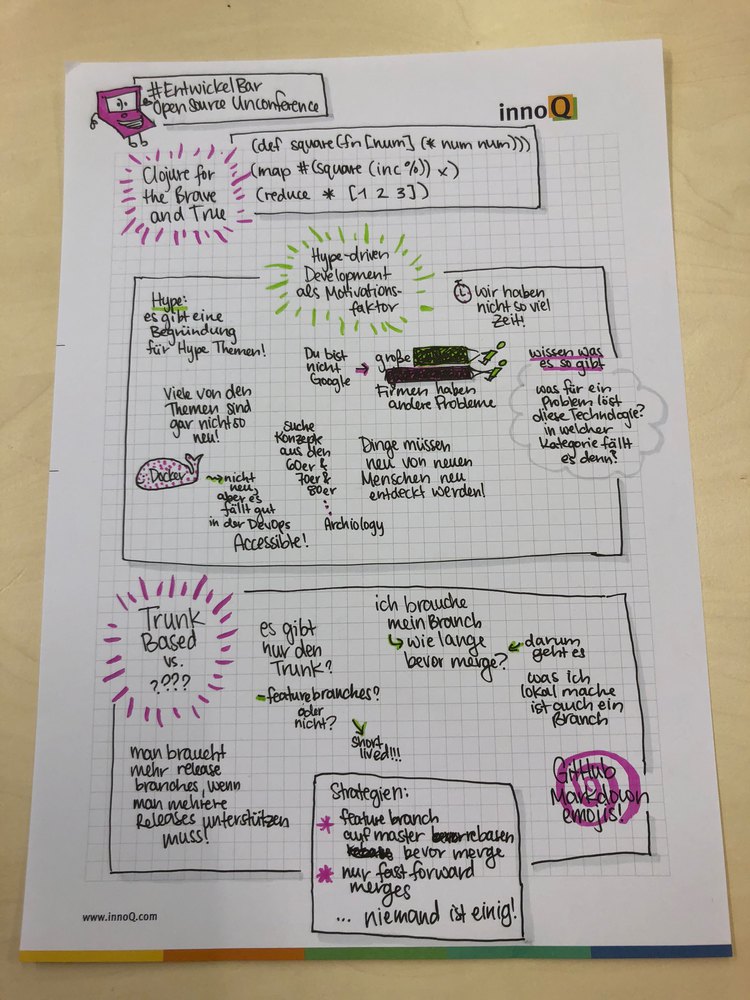 #EntwickelBar
Open Source Unconference
innoQ
Clojure for
the Brave
and True
(def square (fn [num] (* num num)))
(map #(square (inc %)) x)
(reduce * [1 2 3])
Hype-driven
Development
als Motivations-
faktor
Hype:
es gibt eine
Begründung
für Hype Themen!
Wir haben
nicht so viel
Zeit!
Du bist
nicht
Google
große
Firmen haben
andere Probleme
wissen was
es so gibt
was für ein
Problem löst
diese Technologie?
in welcher
Kategorie fällt
es denn?
Viele von den
Themen sind
gar nicht so
neu!
Docker
nicht
neu,
aber es
fällt gut
in der DevOps
Accessible!
suche
Konzepte
aus den
60er &
70er &
80er
Archiology
Dinge müssen
neu von neuen
Menschen neu
entdeckt werden!
Trunk
Based
vs.
????
es gibt
nur den
Trunk?
featurebranches?
oder
nicht?
short
lived!!!
ich brauche
mein Branch
wie lange
bevor merge?
darum
geht es
was ich
lokal mache
ist auch ein
Branch
man braucht
mehr release
branches, wenn
man mehrere
Releases unterstützen
muss!
GitHub
Markdown
emojis!
Strategien:
* feature branch
auf master bevor rebasen
rebase bevor merge
* nur fast forward
merges
... niemand ist einig!
www.innoQ.com